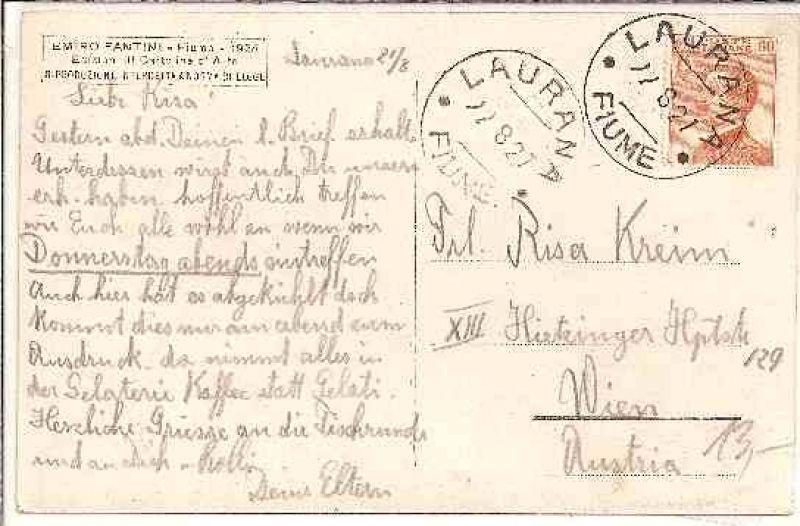 EMIRO FANTINI - Fiume - 1926
Edizioni di Cartoline d'Arte
RIPRODUZIONE INTERDETTA A NORMA DI LEGGE
Laurana 21/8
LAURANA
FIUME
21 8.27
LAURANA
FIUME
21 8.27
60
Liebe Risa!
Gestern abd. Deinen l. Brief erhalt.
Unterdessen wirst auch Du unsern
erh. haben hoffentlich treffen
wir Euch alle wohl an wenn wir
Donnerstag abends eintreffen
Auch hier hat es abgekühlt doch
kommt dies nur am abend zum
Ausdruck. da nimmt alles in
der Gelaterie Kaffee statt Gelati.
Herzliche Grüsse an die Tischrunde
und an Dich
Deine Eltern
Frl. Risa Kreim
XIII Hietzinger Hptstr
129
Wien
Austria
13,-